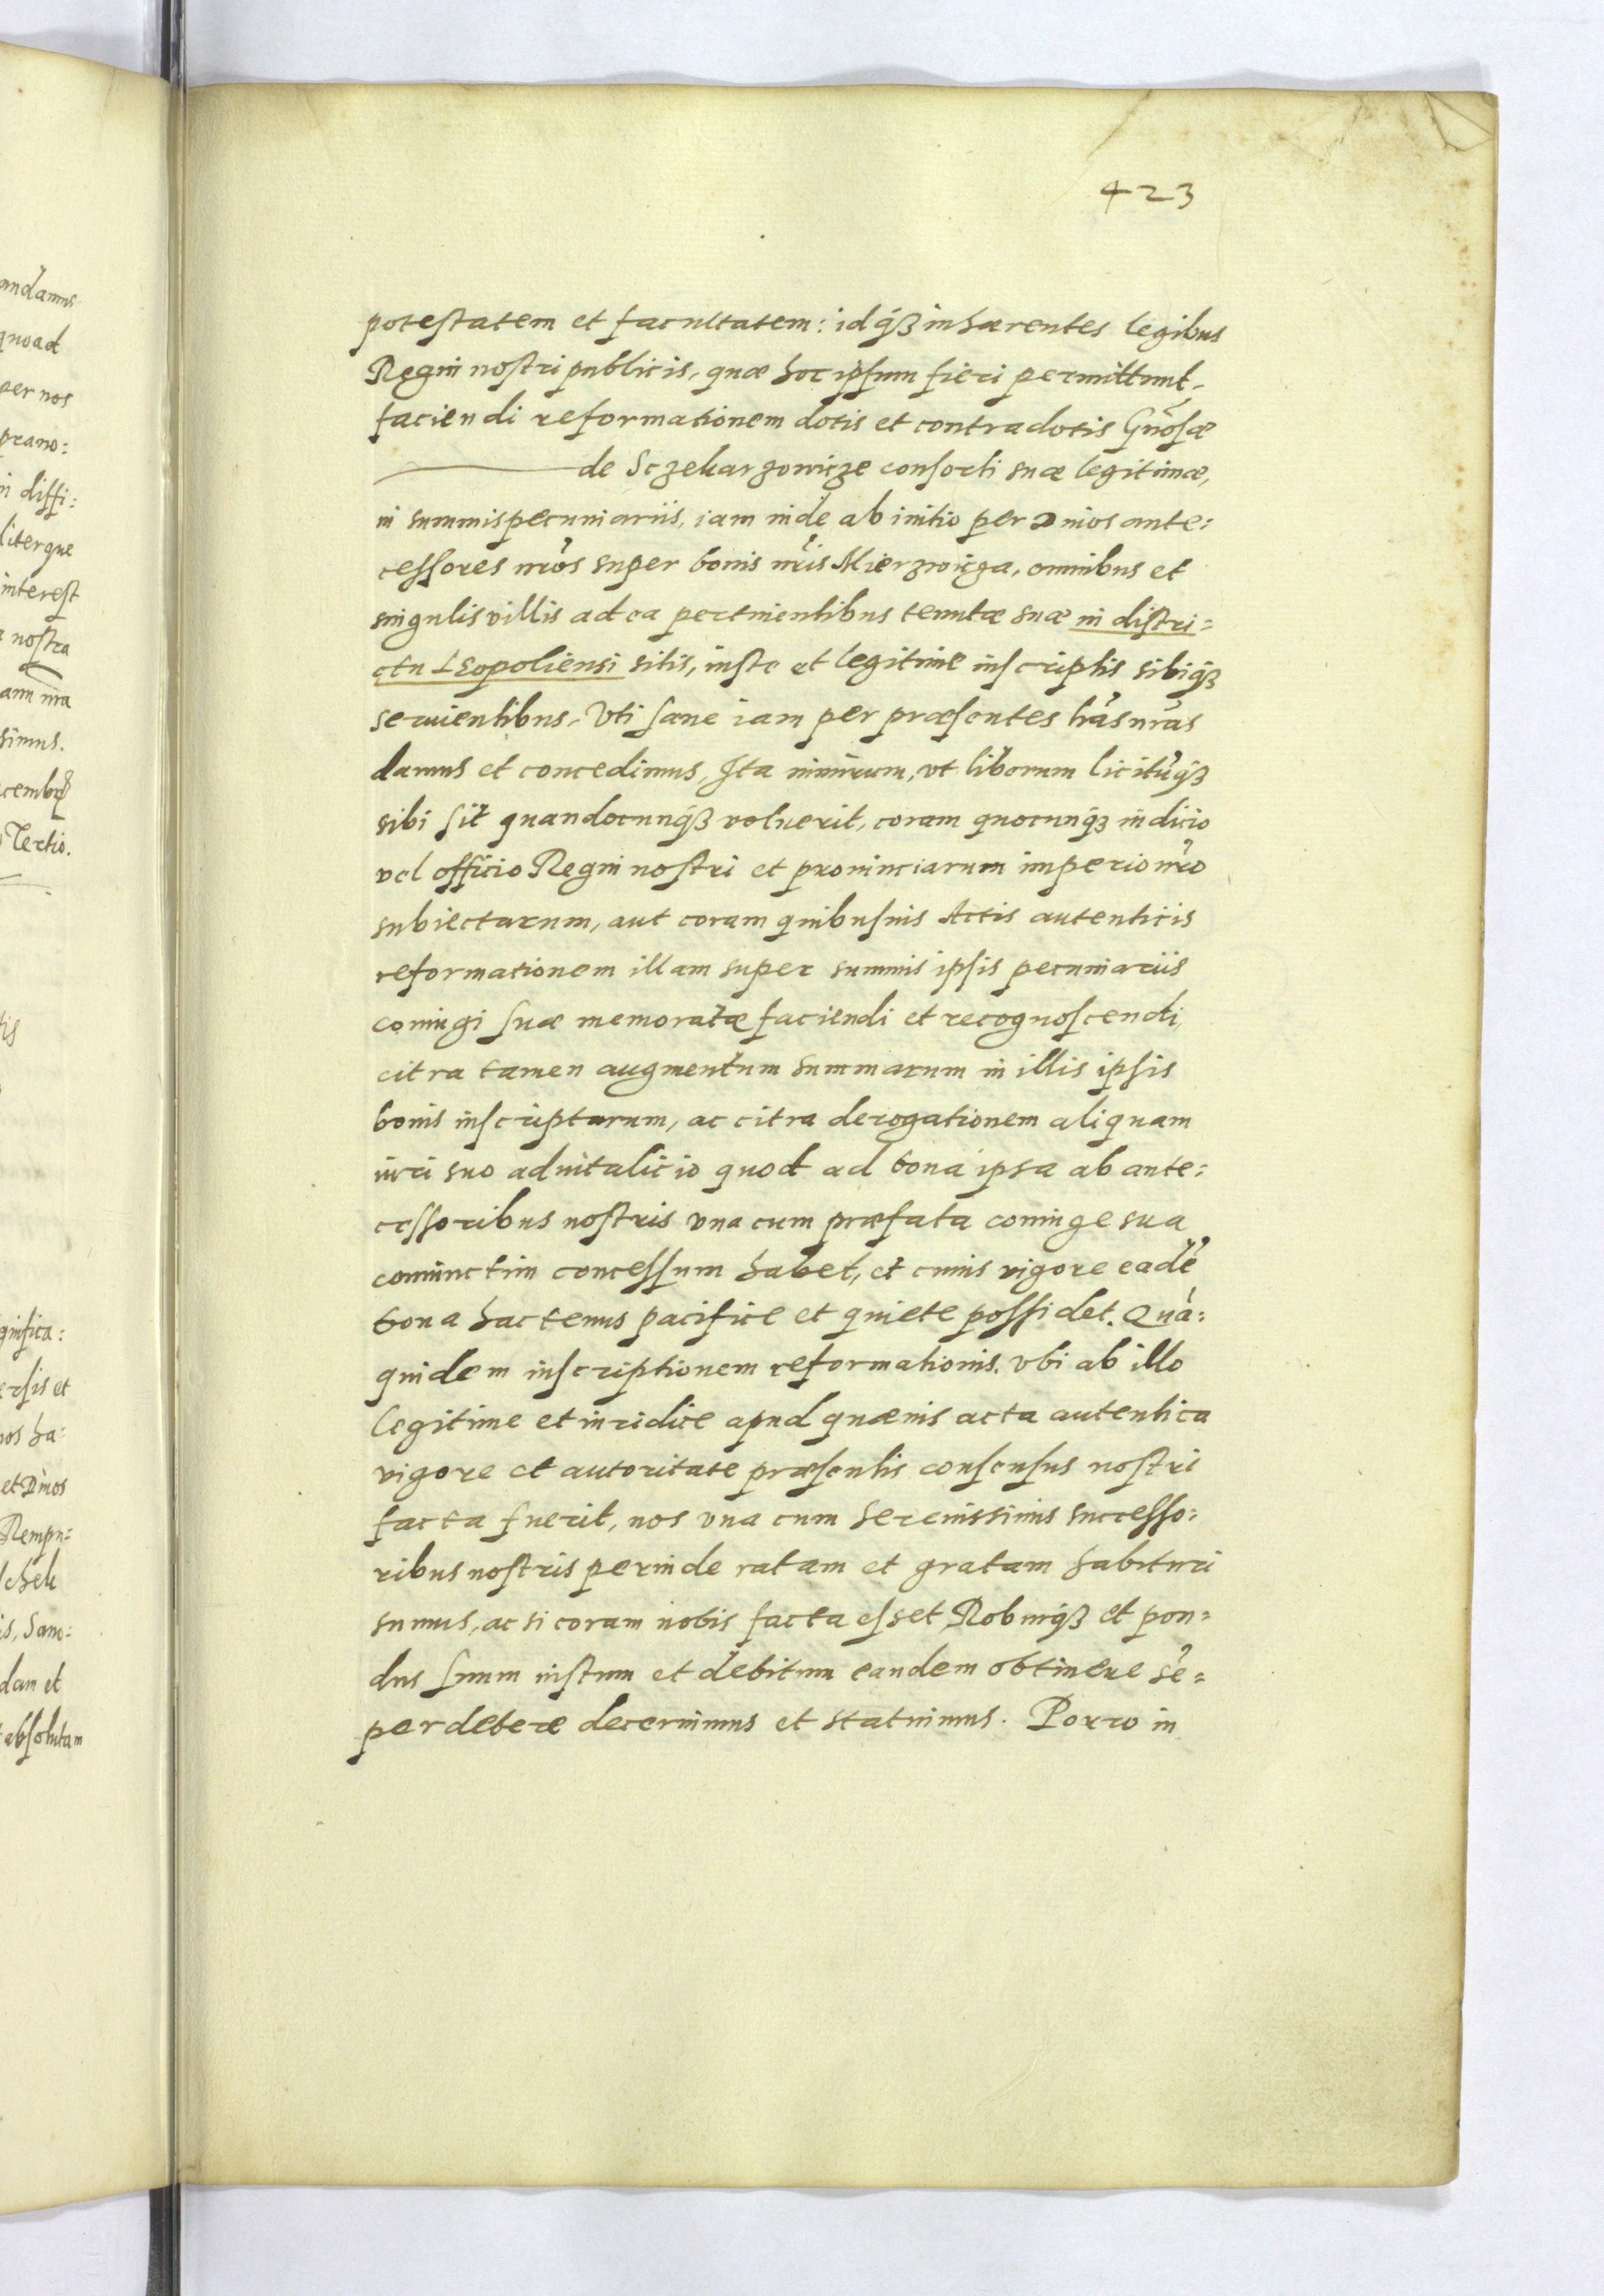 423
potestatem et facultatem: idq́ꝫ inhærentes legibus
Regni nostri publicis, quæ hoc ipsum fieri permittunt,
faciendi reformationem dotis et contradotis Gnosæ
de Sczekarzowicze consorti suæ legitimæ,
in summis pecuniariis, iam inde ab initio per Diuos ante:
cessores nr̃os super bonis nr̃is Mierzwicza, omnibus et
singulis villis ad ea pertinentibus tenutæ suæ in distri=
ctu Leopoliensi sitis, iuste et legitime inscriptis sibiq́ꝫ
seruientibus. Vti sane iam per præsentes lr̃as nr̃as
damus et concedimus, Ita nimirum, vt liberum licitũq́ꝫ
sibi sit quandocunq́ꝫ voluerit, coram quocunq́ꝫ iudicio
vel officio Regni nostri et prouinciarum imperio nr̃o
subiectarum, aut coram quibusuis Actis autenticis
reformationem illam super summis ipsis pecuniariis
coniugi suæ memoratæ faciendi et recognoscendi,
citra tamen augmentum summarum in illis ipsis
bonis inscriptarum, ac citra derogationem aliquam
iuri suo aduitalicio quod ad bona ipsa ab ante:
cessoribus nostris vna cum præfata coniuge sua
coniunctim concessum habet, et cuius vigore eadẽ
bona hactenus pacifice et quiete possidet. Quã:
quidem inscriptionem reformationis. vbi ab illo
legitime et iuridice apud quæuis acta autentica
vigore et autoritate præsentis consensus nostri
facta fuerit, nos vna cum Serenissimis successo:
ribus nostris perinde ratam et gratam habituri
sumus, ac si coram nobis facta esset, Roburq́ꝫ et pon=
dus suum iustum et debitum eandem obtinere sẽ=
per debere decernimus et statuimus. Porro in